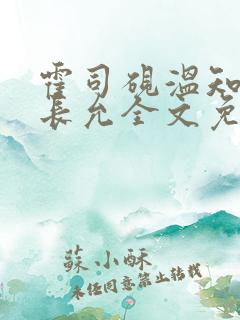 霍司砚温知
长允全文免
蘇小酥
未经同意禁止转载